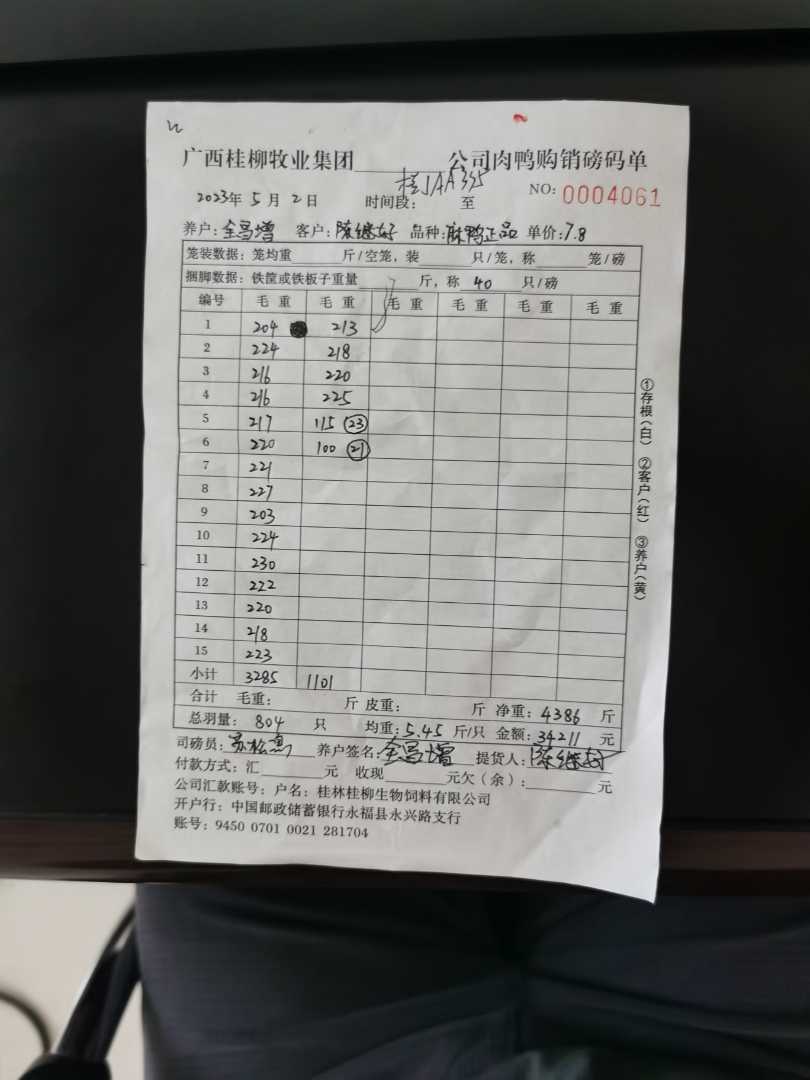 广西桂柳牧业集团______公司肉鸭购销磅码单
桂JAA375
2023年 5 月 2 日 时间段: 至 NO: 0004061
养户: 全昌增 客户: 陈继好 品种: 麻鸭正品 单价: 7.8
笼装数据: 笼均重______斤/空笼, 装______只/笼, 称______笼/磅
捆脚数据: 铁筐或铁板子重量______斤, 称 40 只/磅
编号 毛 重 毛 重 毛 重 毛 重 毛 重 毛 重
1 204 213
2 224 218
3 216 220
4 216 225
5 217 115 (23)
6 220 100 (21)
7 221
8 227
9 203
10 224
11 230
12 222
13 220
14 218
15 223
小计 3285 1101
合计 毛重: 斤 皮重: 斤 净重: 4386 斤
总羽量: 804 只 均重: 5.45 斤/只 金额: 34211 元
司磅员: 苏松 养户签名: 全昌增 提货人: 陈继好
付款方式: 汇______元 收现______元欠(余): ______元
公司汇款账号: 户名: 桂林桂柳生物饲料有限公司
开户行: 中国邮政储蓄银行永福县永兴路支行
账号: 9450 0701 0021 281704
①存根(白) ②客户(红) ③养户(黄)